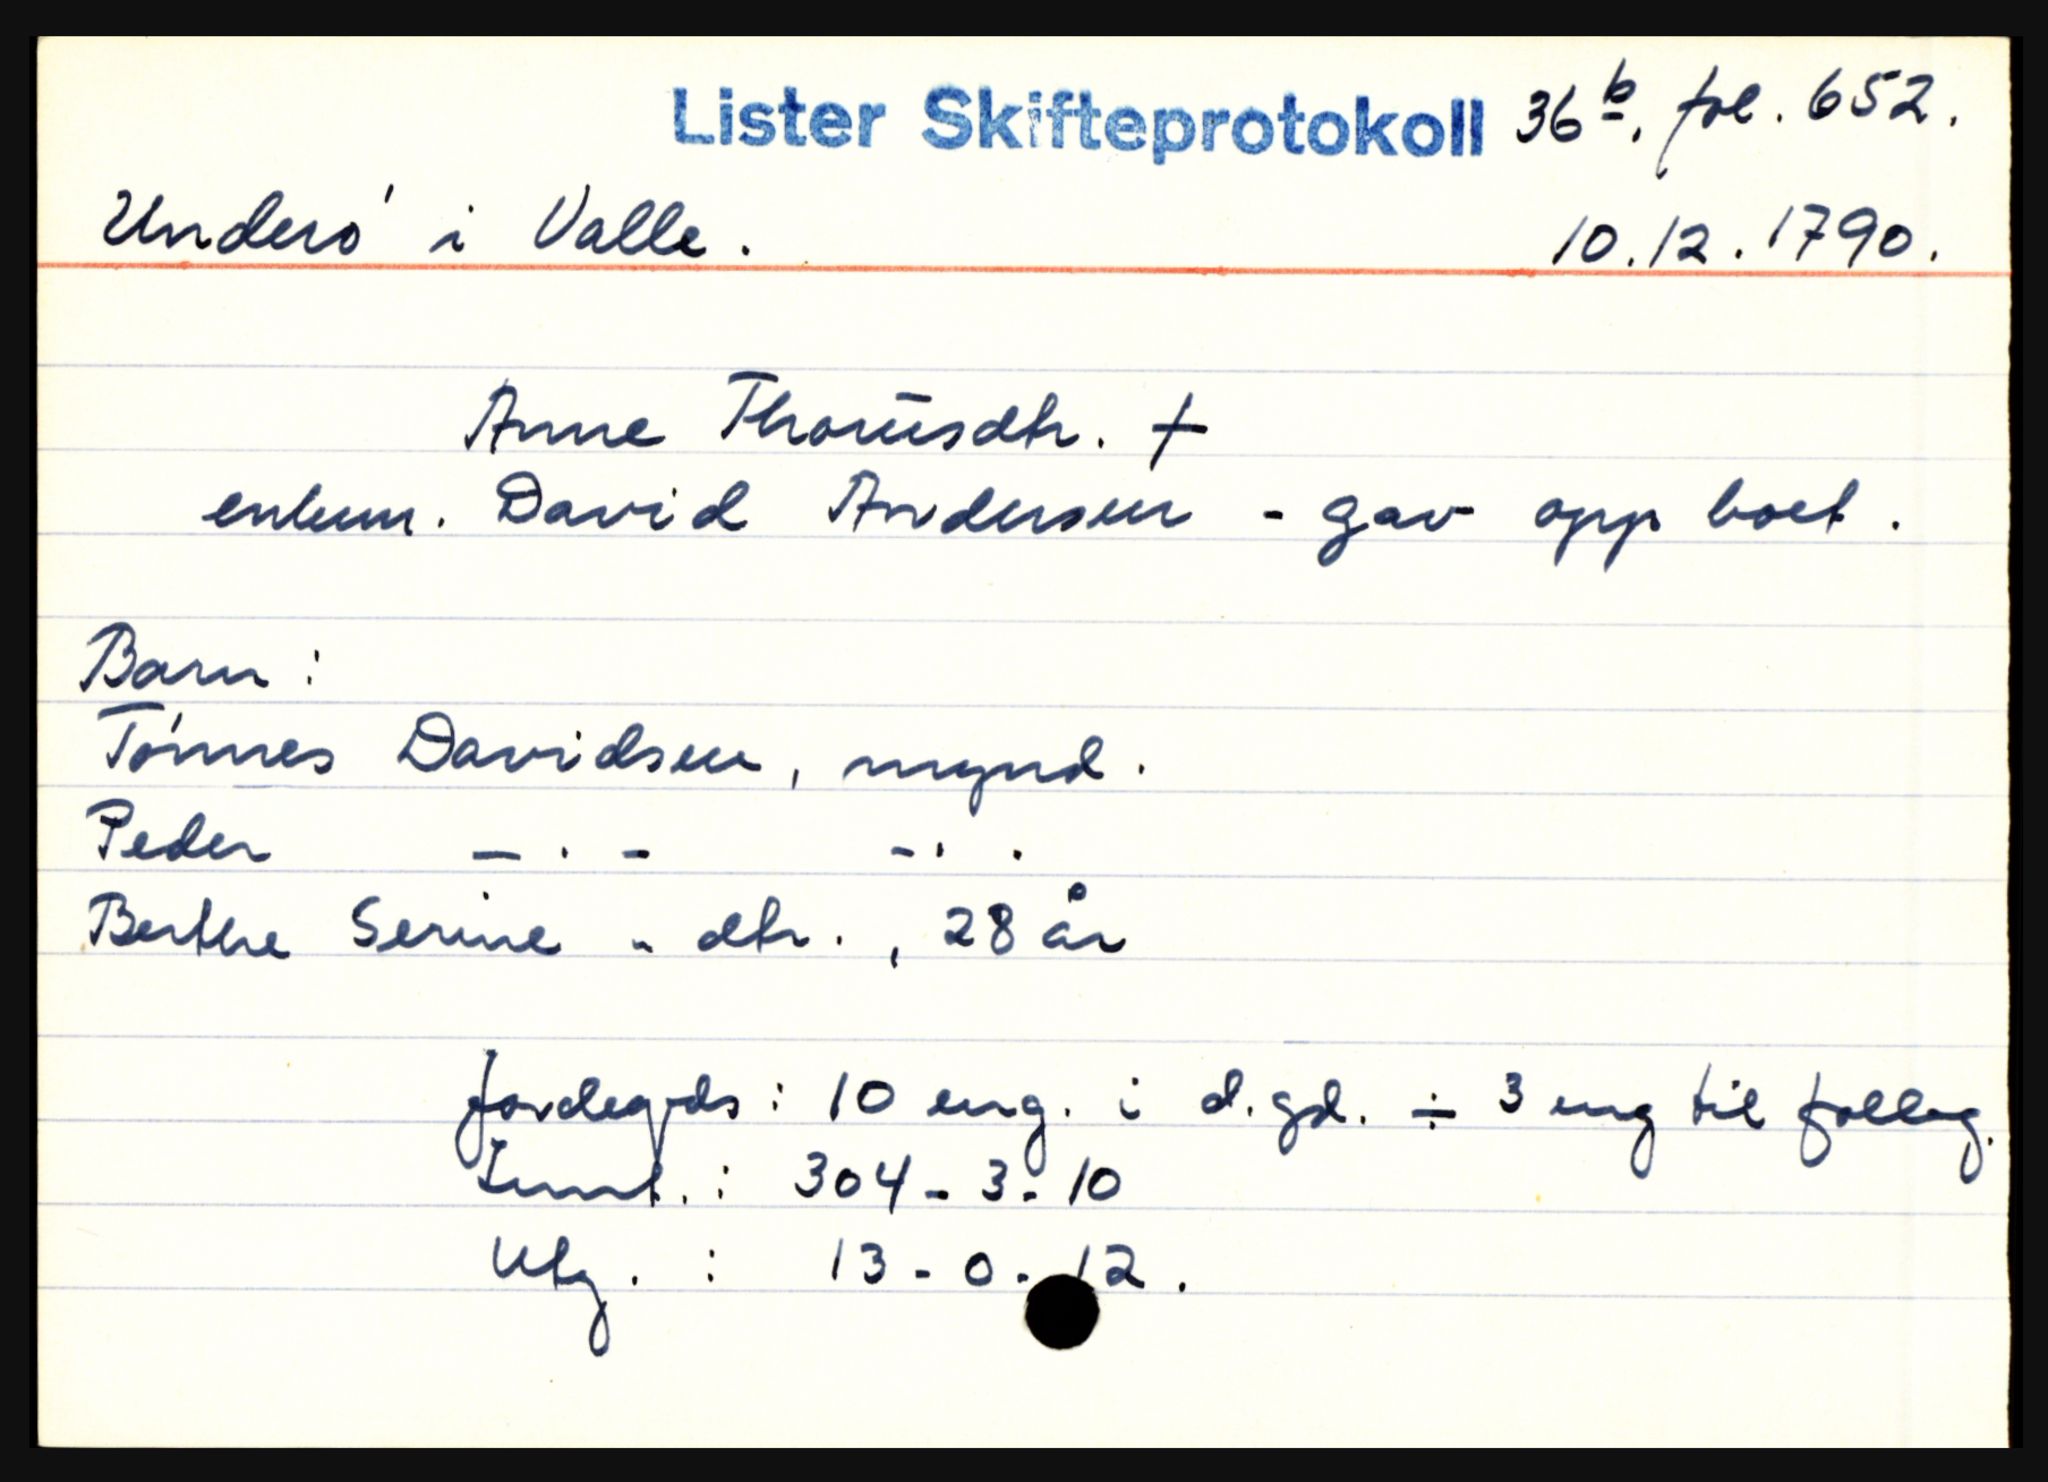 Lister Skifteprotokoll 36b. fol. 652.
Underø i Valle. 10.12.1790.
Anne Thomsdtr. †
enkem. David Andersen - gav opp boet.
Barn:
Tønnes Davidsen, mynd.
Peder — . - - . .
Berthe Serine - dtr., 28 år
Jordegods: 10 eng. i d.gd. ÷ 3 eng til folleg.
Innt.: 304-3-10
Utg.: 13-0-12.